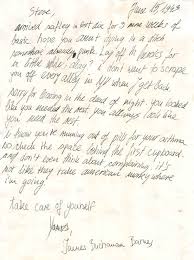 June 14 1943
Steve,
arrived safley in
weeks of
basic hope you aren't dying in a ditch
somewhere already punk. Lay off to heroes for
in little while okay? I don't want to scrape
you off every alley in when I get back
sorry for leaving in the dead of night you looked
like you needed the rest you always look like
you need the rest
I know you're running out of pills for your asthma
so check the space behind the first cupboard.
and don't even think about complaining it's
not like they take american money where
I'm going.
take care of yourself
Yours,
James Buchanan Barnes